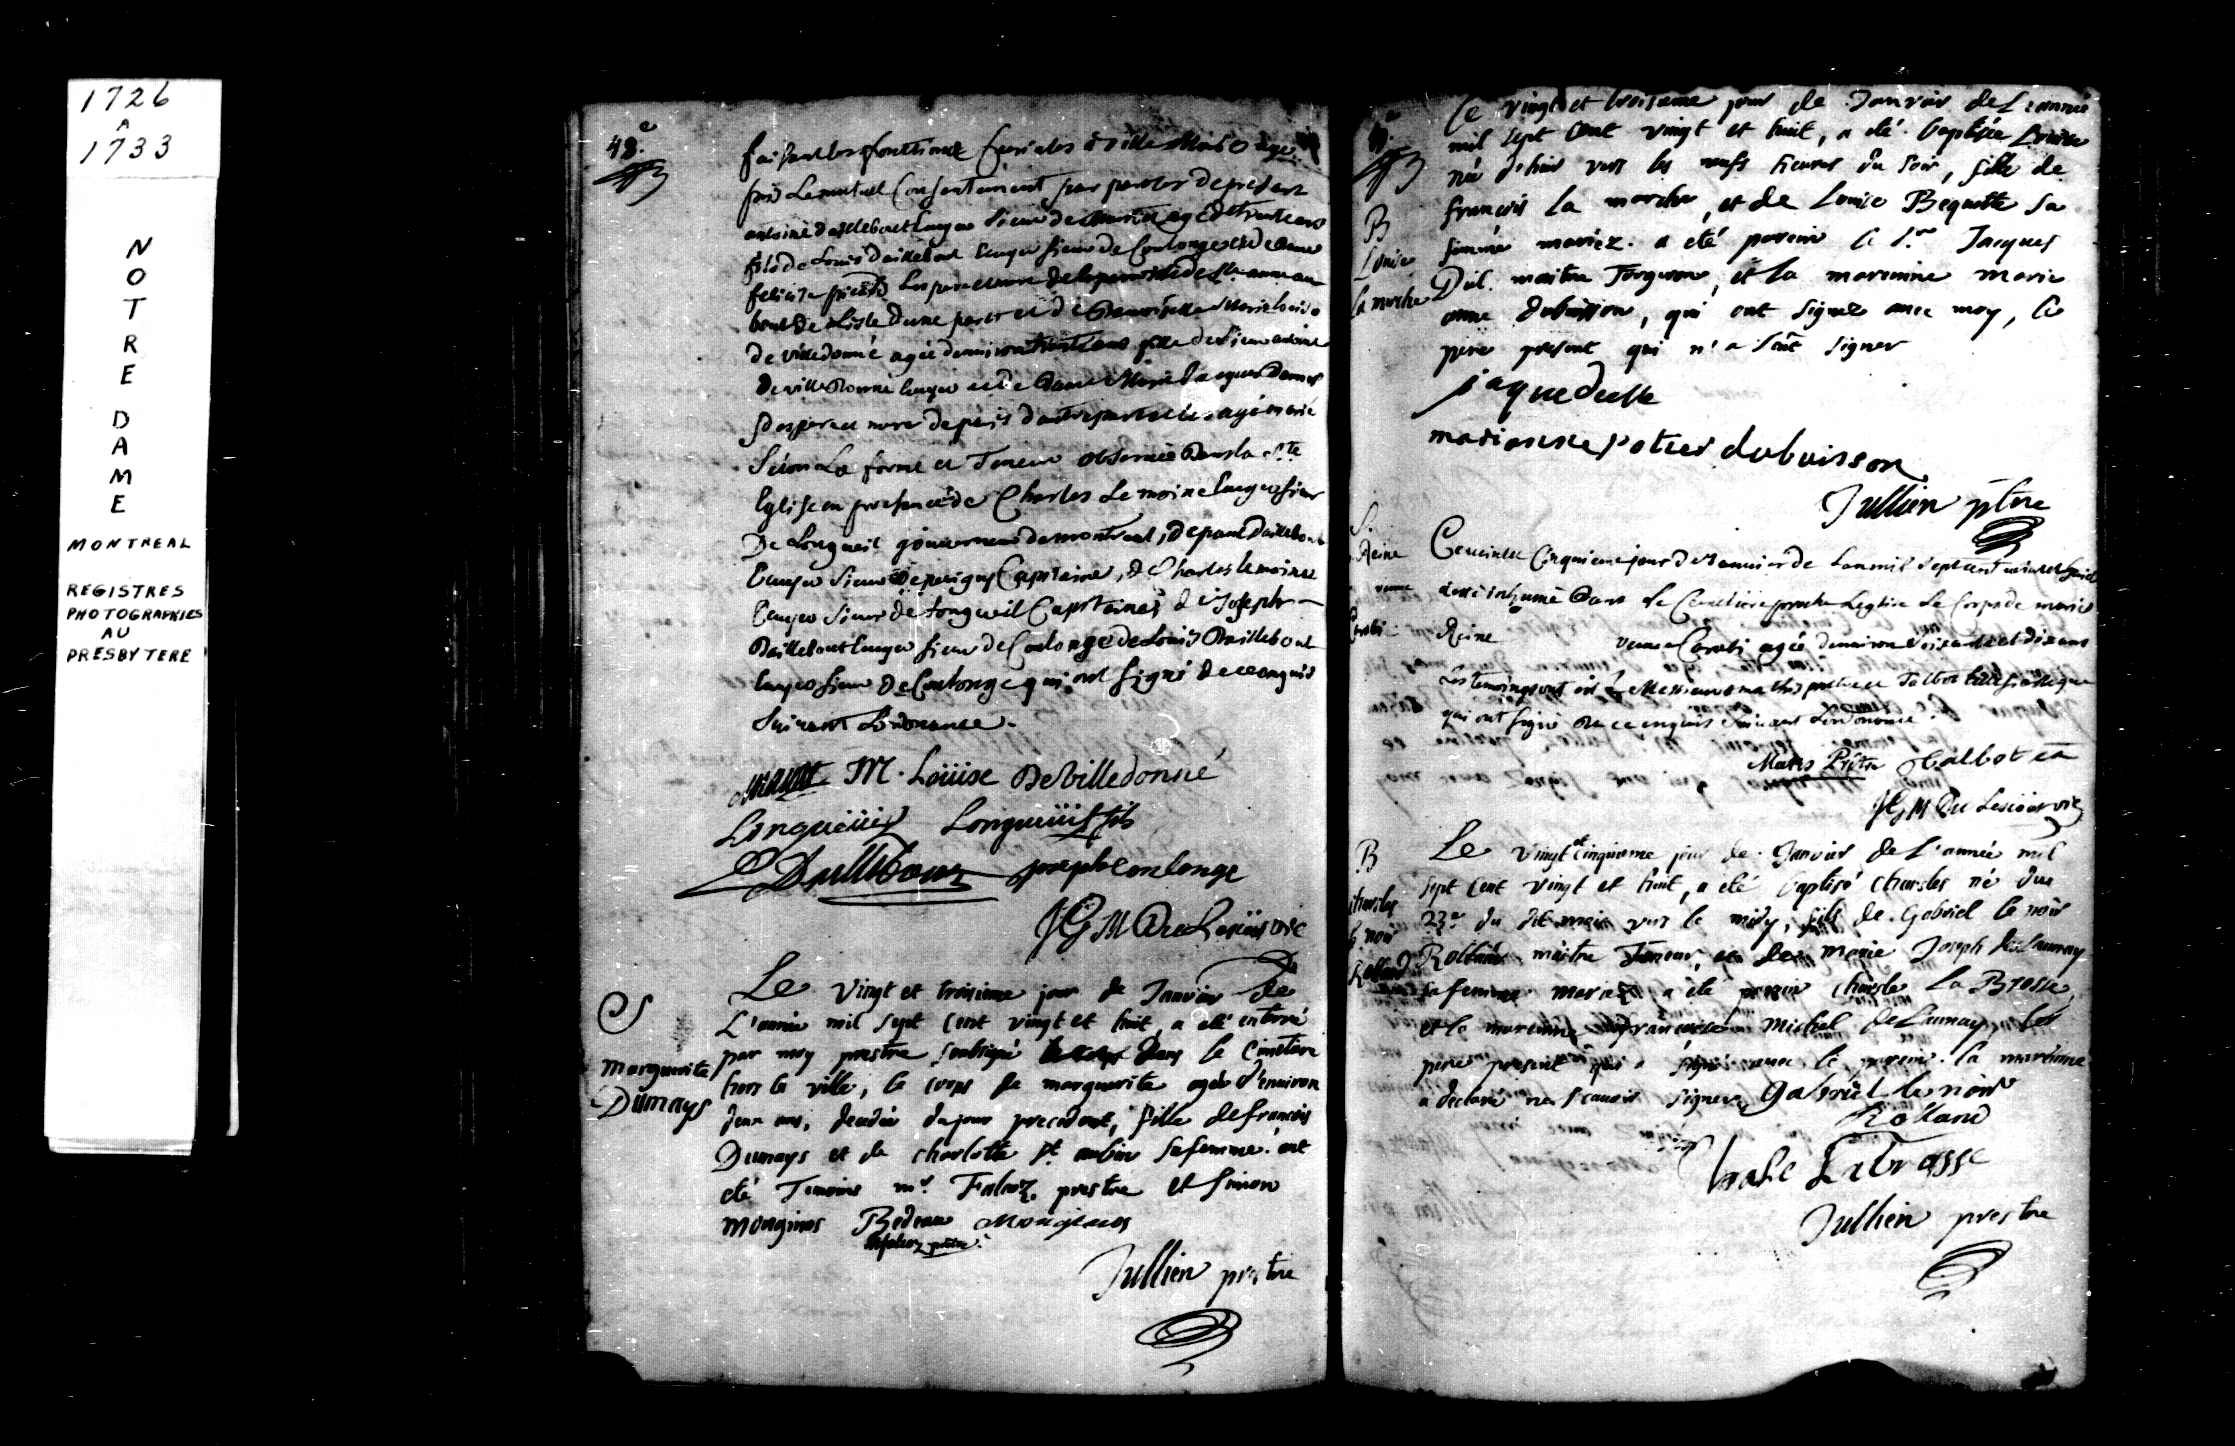 1726
A
1733
NOTRE DAME
MONTREAL
REGISTRES
PHOTOGRAPHIES
AU
PRESBYTERE
48.e
faisant les fonctions Curiales à Ville Marie ayant
pris Le mutuel Consentement par paroles de present
antoine daillebout Ecuyer Sieur de agé de trente ans
fils de Louis Daillebout Ecuyer sieur de Coulonge et de dame
felicité picard Les pere et mere de la paroisse de Ste anne au
bout de L'isle d'une part et de Damoiselle Marie louise
de villedonné agée d'environ ans fille de Sieur antoine
de villedonné Ecuyer et de Dame Marie
Ses pere et mere de d'autre part Les ay marié
Selon La forme et Teneur observée Dans la Ste
Eglise en presence de Charles Le moine Ecuyer sieur
De Longueil gouverneur de montreal, de paul Daillebout
Ecuyer Sieur de perigny Capitaine, de Charles le moine
Ecuyer Sieur de Longueil Capitaine, de Joseph
Daillebout Ecuyer sieur de Coulonge de Louis Daillebout
Ecuyer sieur de Coulonge qui ont signé de ce enquis
Suivant L'ordonnance.
M. Loüise De Villedonné
Longueüil Longueüil fils
Daillebout joseph Coulonge
JGM DuLescöat vic
S
Marguerite
Dumays
Le Vingt et troisieme jour de Janvier de
L'année mil sept cent vingt et huit, a eté enterré
par moy prestre soubsigné dans le Cimetiere
hors la ville, le corps de marguerite agée d'environ
deux ans, decedée du jour precedent, fille de francois
Dumays et de charlotte St. aubin sa femme. ont
eté Temoins mr. Falcoz prestre et simon
mongines Bedeau Mongineos
falcoz prêtre
Jullien prestre
B
Louise
la marche
Le vingt et troisieme jour de Janvier de L'année
mil sept cent vingt et huit, a eté baptisée Louise
née d'hier vers les neufs heures du soir, fille de
francois la marche, et de Louise Bequette sa
femme mariez. a eté parein le Sr. Jacques
Duel. maitre Forgeron, et la mareinne marie
anne dubuisson, qui ont signez avec moy, le
pere present qui n'a sceut signer
jaque duelle
marianne potier dubuisson
Jullien ptre
S.
Reine
veuve
Carabi
Ce vint Cinquieme jour de Janvier de Lan mil sept cent vint et huit
a eté inhumé Dans le Cimetiere proche L'eglise Le Corps de marie
Reine veuve Carabi agée d'environ soixante et dix ans
Les temoins ont eté Messieurs mathis prêtre et Talbot Ecclesiastique
qui ont signé de ce enquis suivant L'ordonance.
Matis Prêtre Talbot
JGM Du Lescöat vic
B
charles
le noir
Rolland
Le vingt et cinquieme jour de Janvier de L'année mil
sept cent vingt et huit, a eté baptisé charles né du
23e du dit mois vers le midy, fils de Gabriel le noir
Rolland maitre, et de marie Joseph deLaunay
sa femme mariez a eté parein charle La Brosse
et la mareinne françoise michel deLaunay, le
pere present qui a signé avec le parein. la mareinne
a declaré ne scavoir signer. Gabriël le noir
Rolland
LaBrosse
Jullien prestre